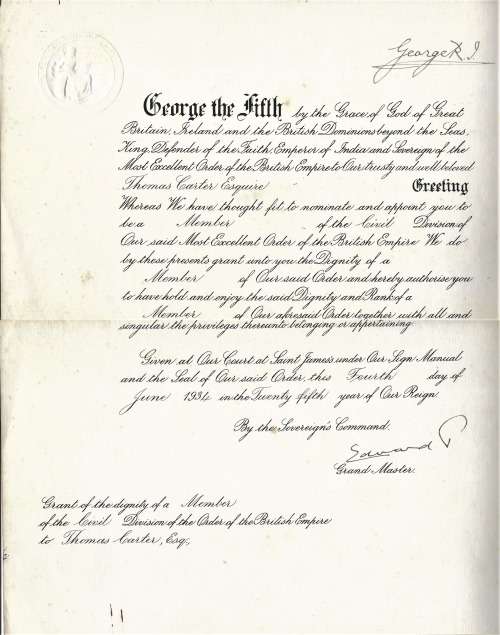 George R. I.
George the Fifth by the Grace of God of Great
Britain, Ireland and the British Dominions beyond the Seas,
King, Defender of the Faith, Emperor of India and Sovereign of the
Most Excellent Order of the British Empire to Our trusty and well beloved
Thomas Carter Esquire Greeting
Whereas We have thought fit to nominate and appoint you to
be a Member of the Civil Division of
Our said Most Excellent Order of the British Empire We do
by these presents grant unto you the Dignity of a
Member of Our said Order and hereby authorise you
to have hold and enjoy the said Dignity and Rank of a
Member of Our aforesaid Order together with all and
singular the privileges thereunto belonging or appertaining.
Given at Our Court at Saint James's under Our Sign Manual
and the Seal of Our said Order, this Fourth day of
June 1934 in the Twenty fifth year of Our Reign.
By the Sovereign's Command.
Edward P
Grand Master.
Grant of the dignity of a Member
of the Civil Division of the Order of the British Empire
to Thomas Carter, Esq.,